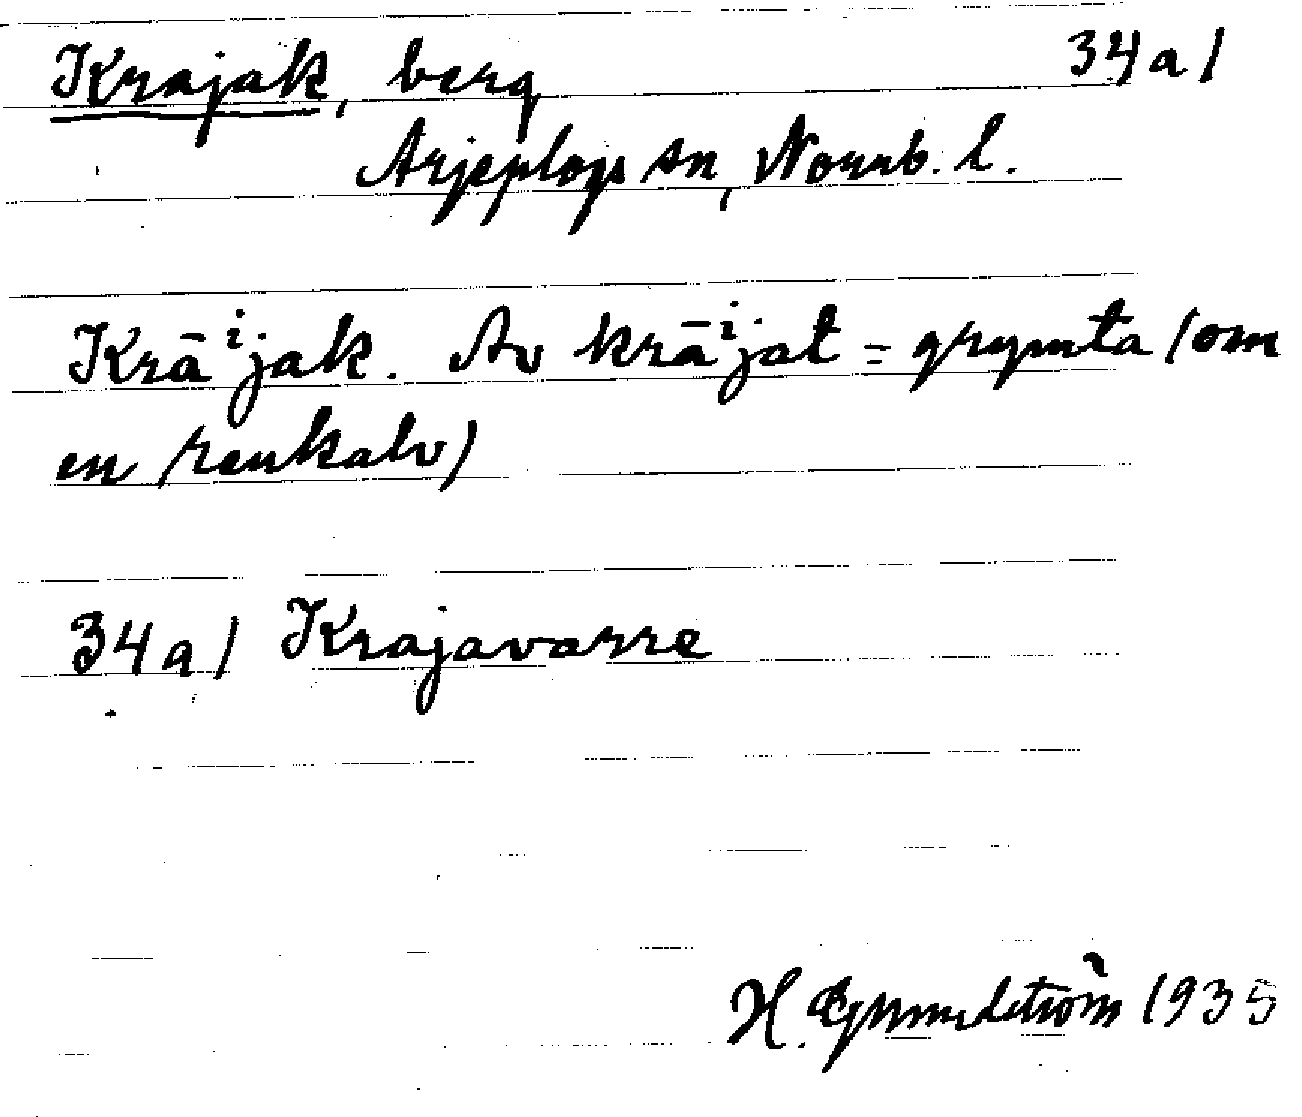 Krajak, berg 34a/
Arjeplogs sn, Norrb. l.
Krāⁱjak. Av krāⁱjat = grymta (om
en renkalv)
34a/ Krajavarre
H. Grundström 1935